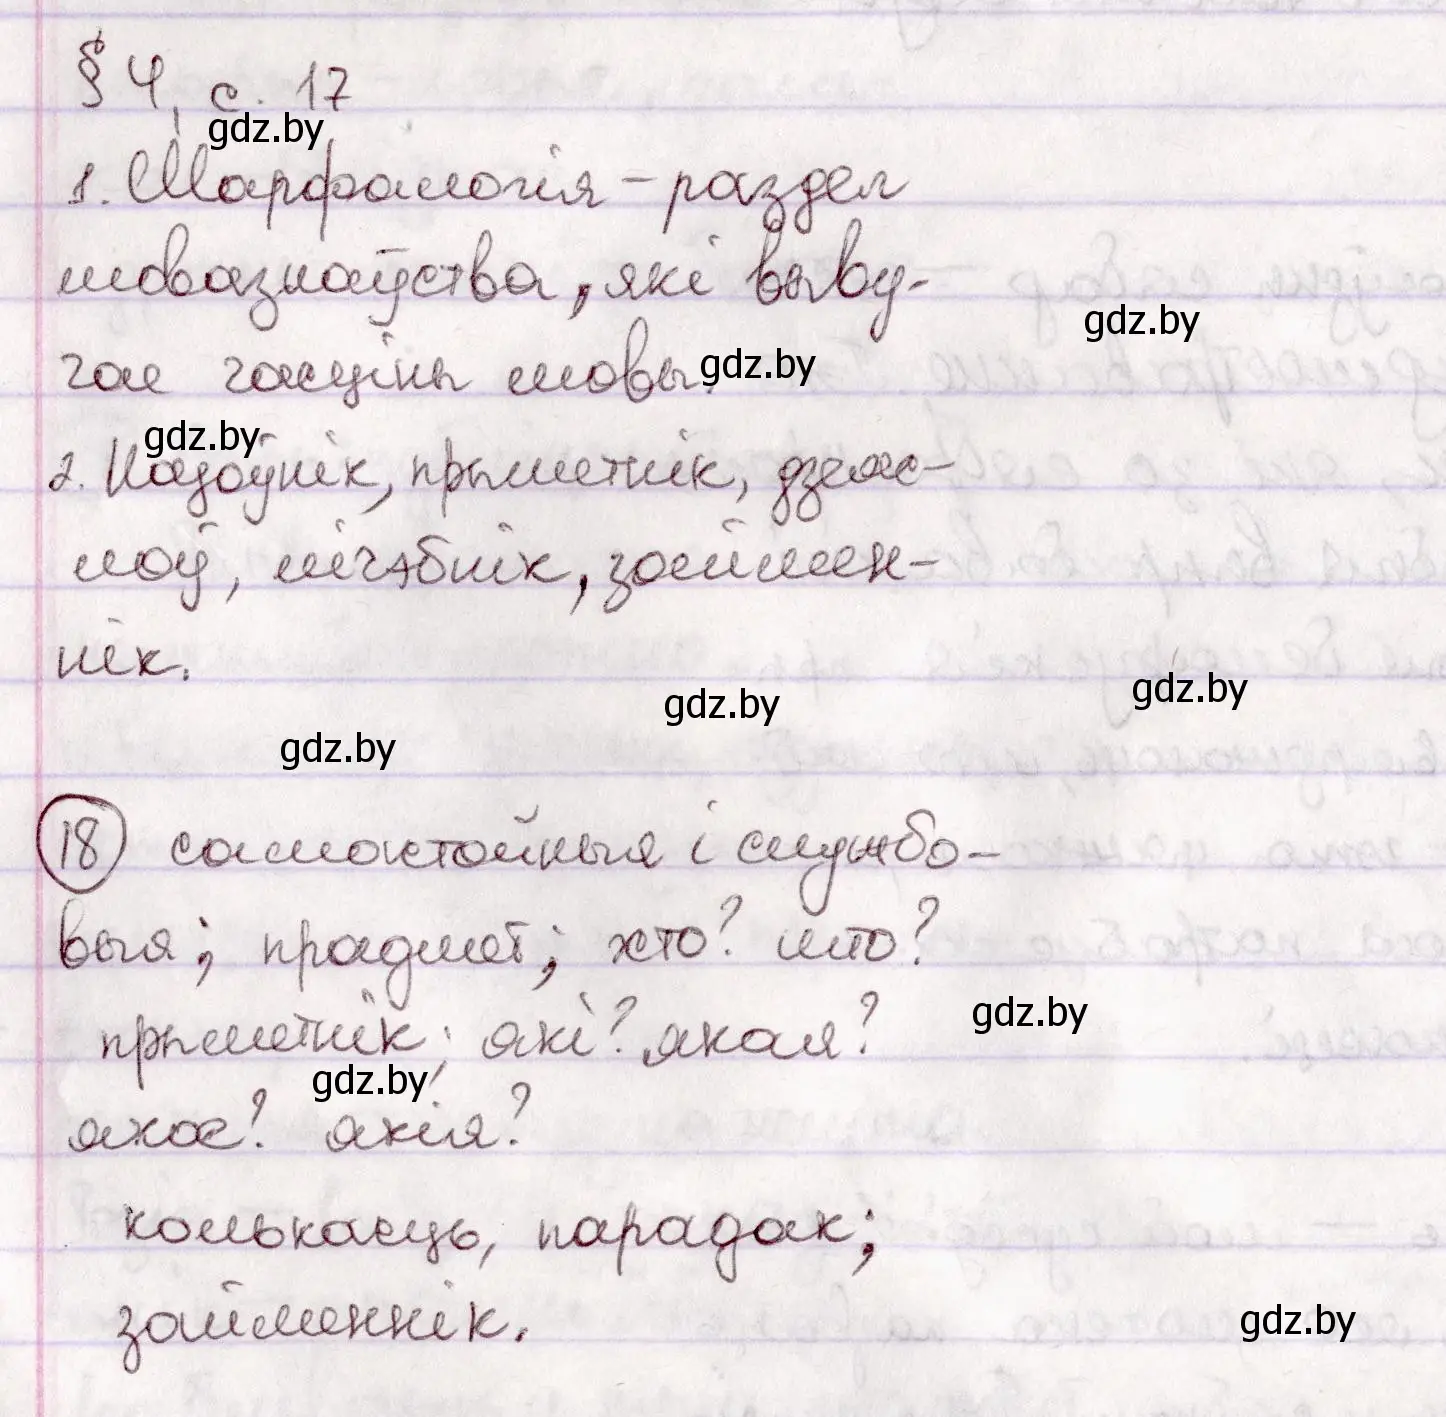 § 4, с. 17
gdz.by
1. Марфалогія – раздел
мовазнаўства, які выву-
gdz.by
чае часціны мовы.
gdz.by
gdz.by
2. Назоўнік, прыметнік, дзеяс-
лоў, лічэбнік, займен-
нік.
gdz.by
gdz.by
gdz.by
18 самастойныя і службо-
выя; прадмет; хто? што?
gdz.by
прыметнік; які? якая?
gdz.by
якое? якія?
колькасць, парадак;
займеннік.
gdz.by